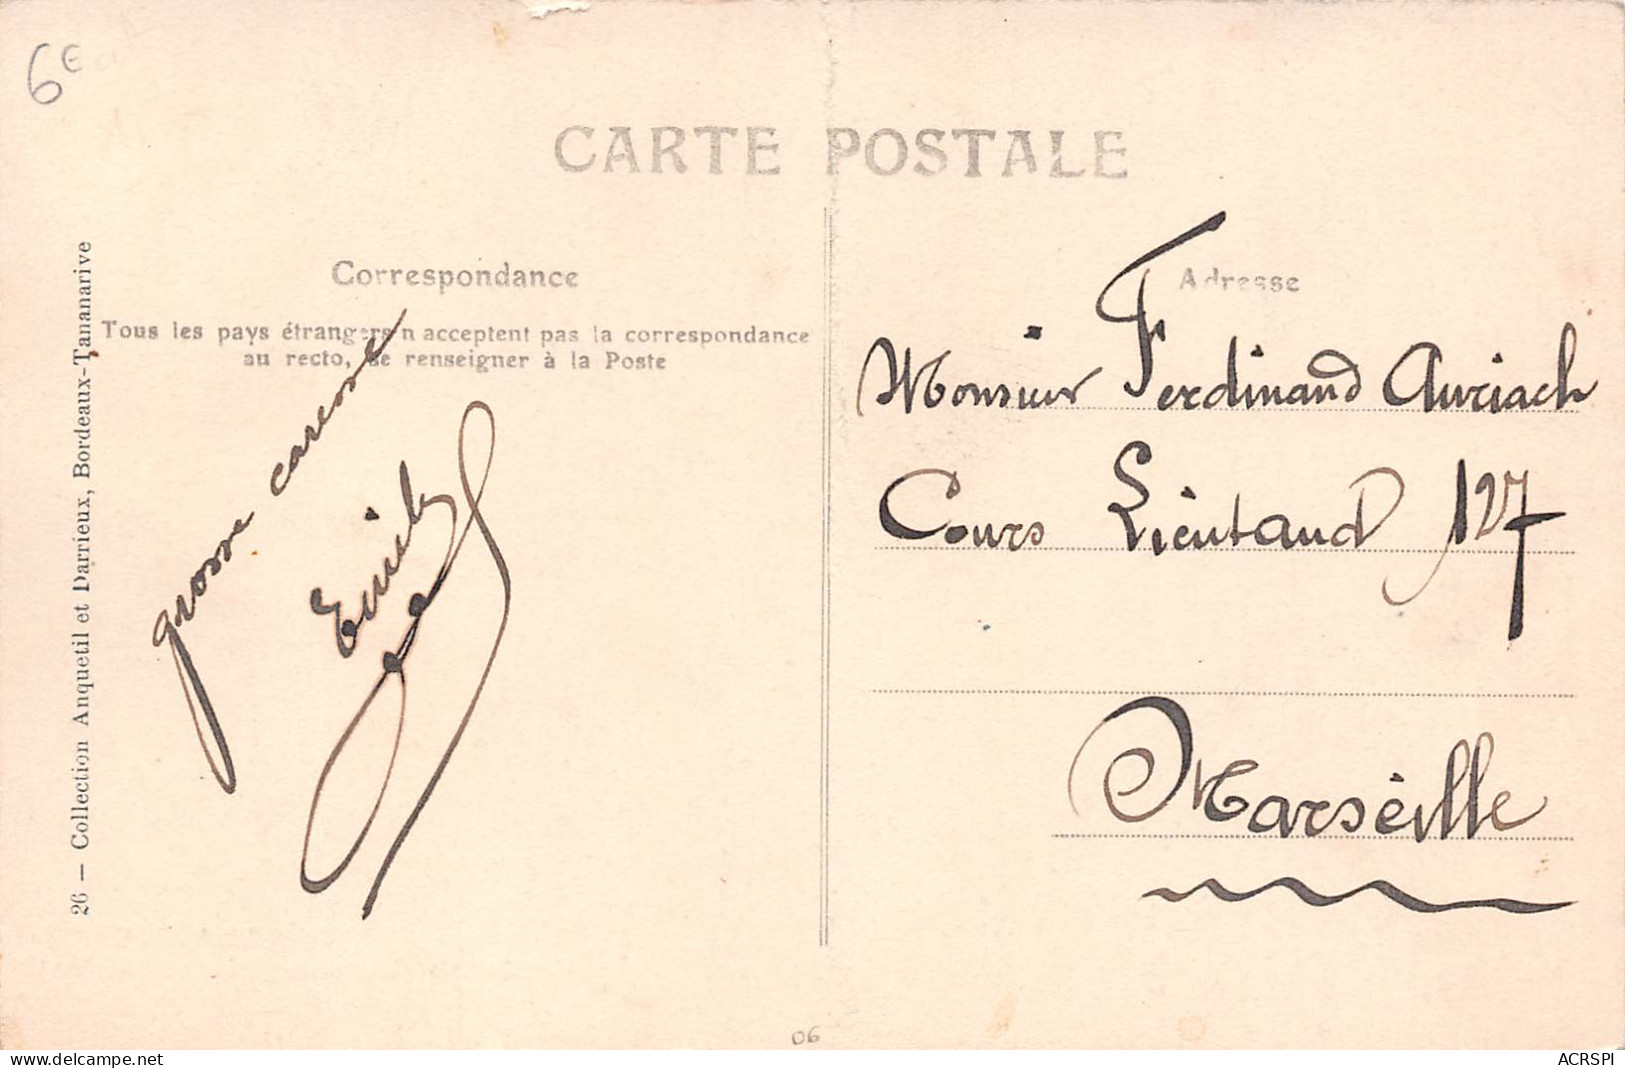 6€
CARTE POSTALE
Correspondance
Tous les pays étrangers n'acceptent pas la correspondance
au recto, se renseigner à la Poste
26 — Collection Anquetil et Darrieux, Bordeaux-Tananarive
grosse caresse
Emile
Adresse
Monsieur Ferdinand Auriach
Cours Lieutaud 127
Marseille
06
www.delcampe.net
ACRSPI